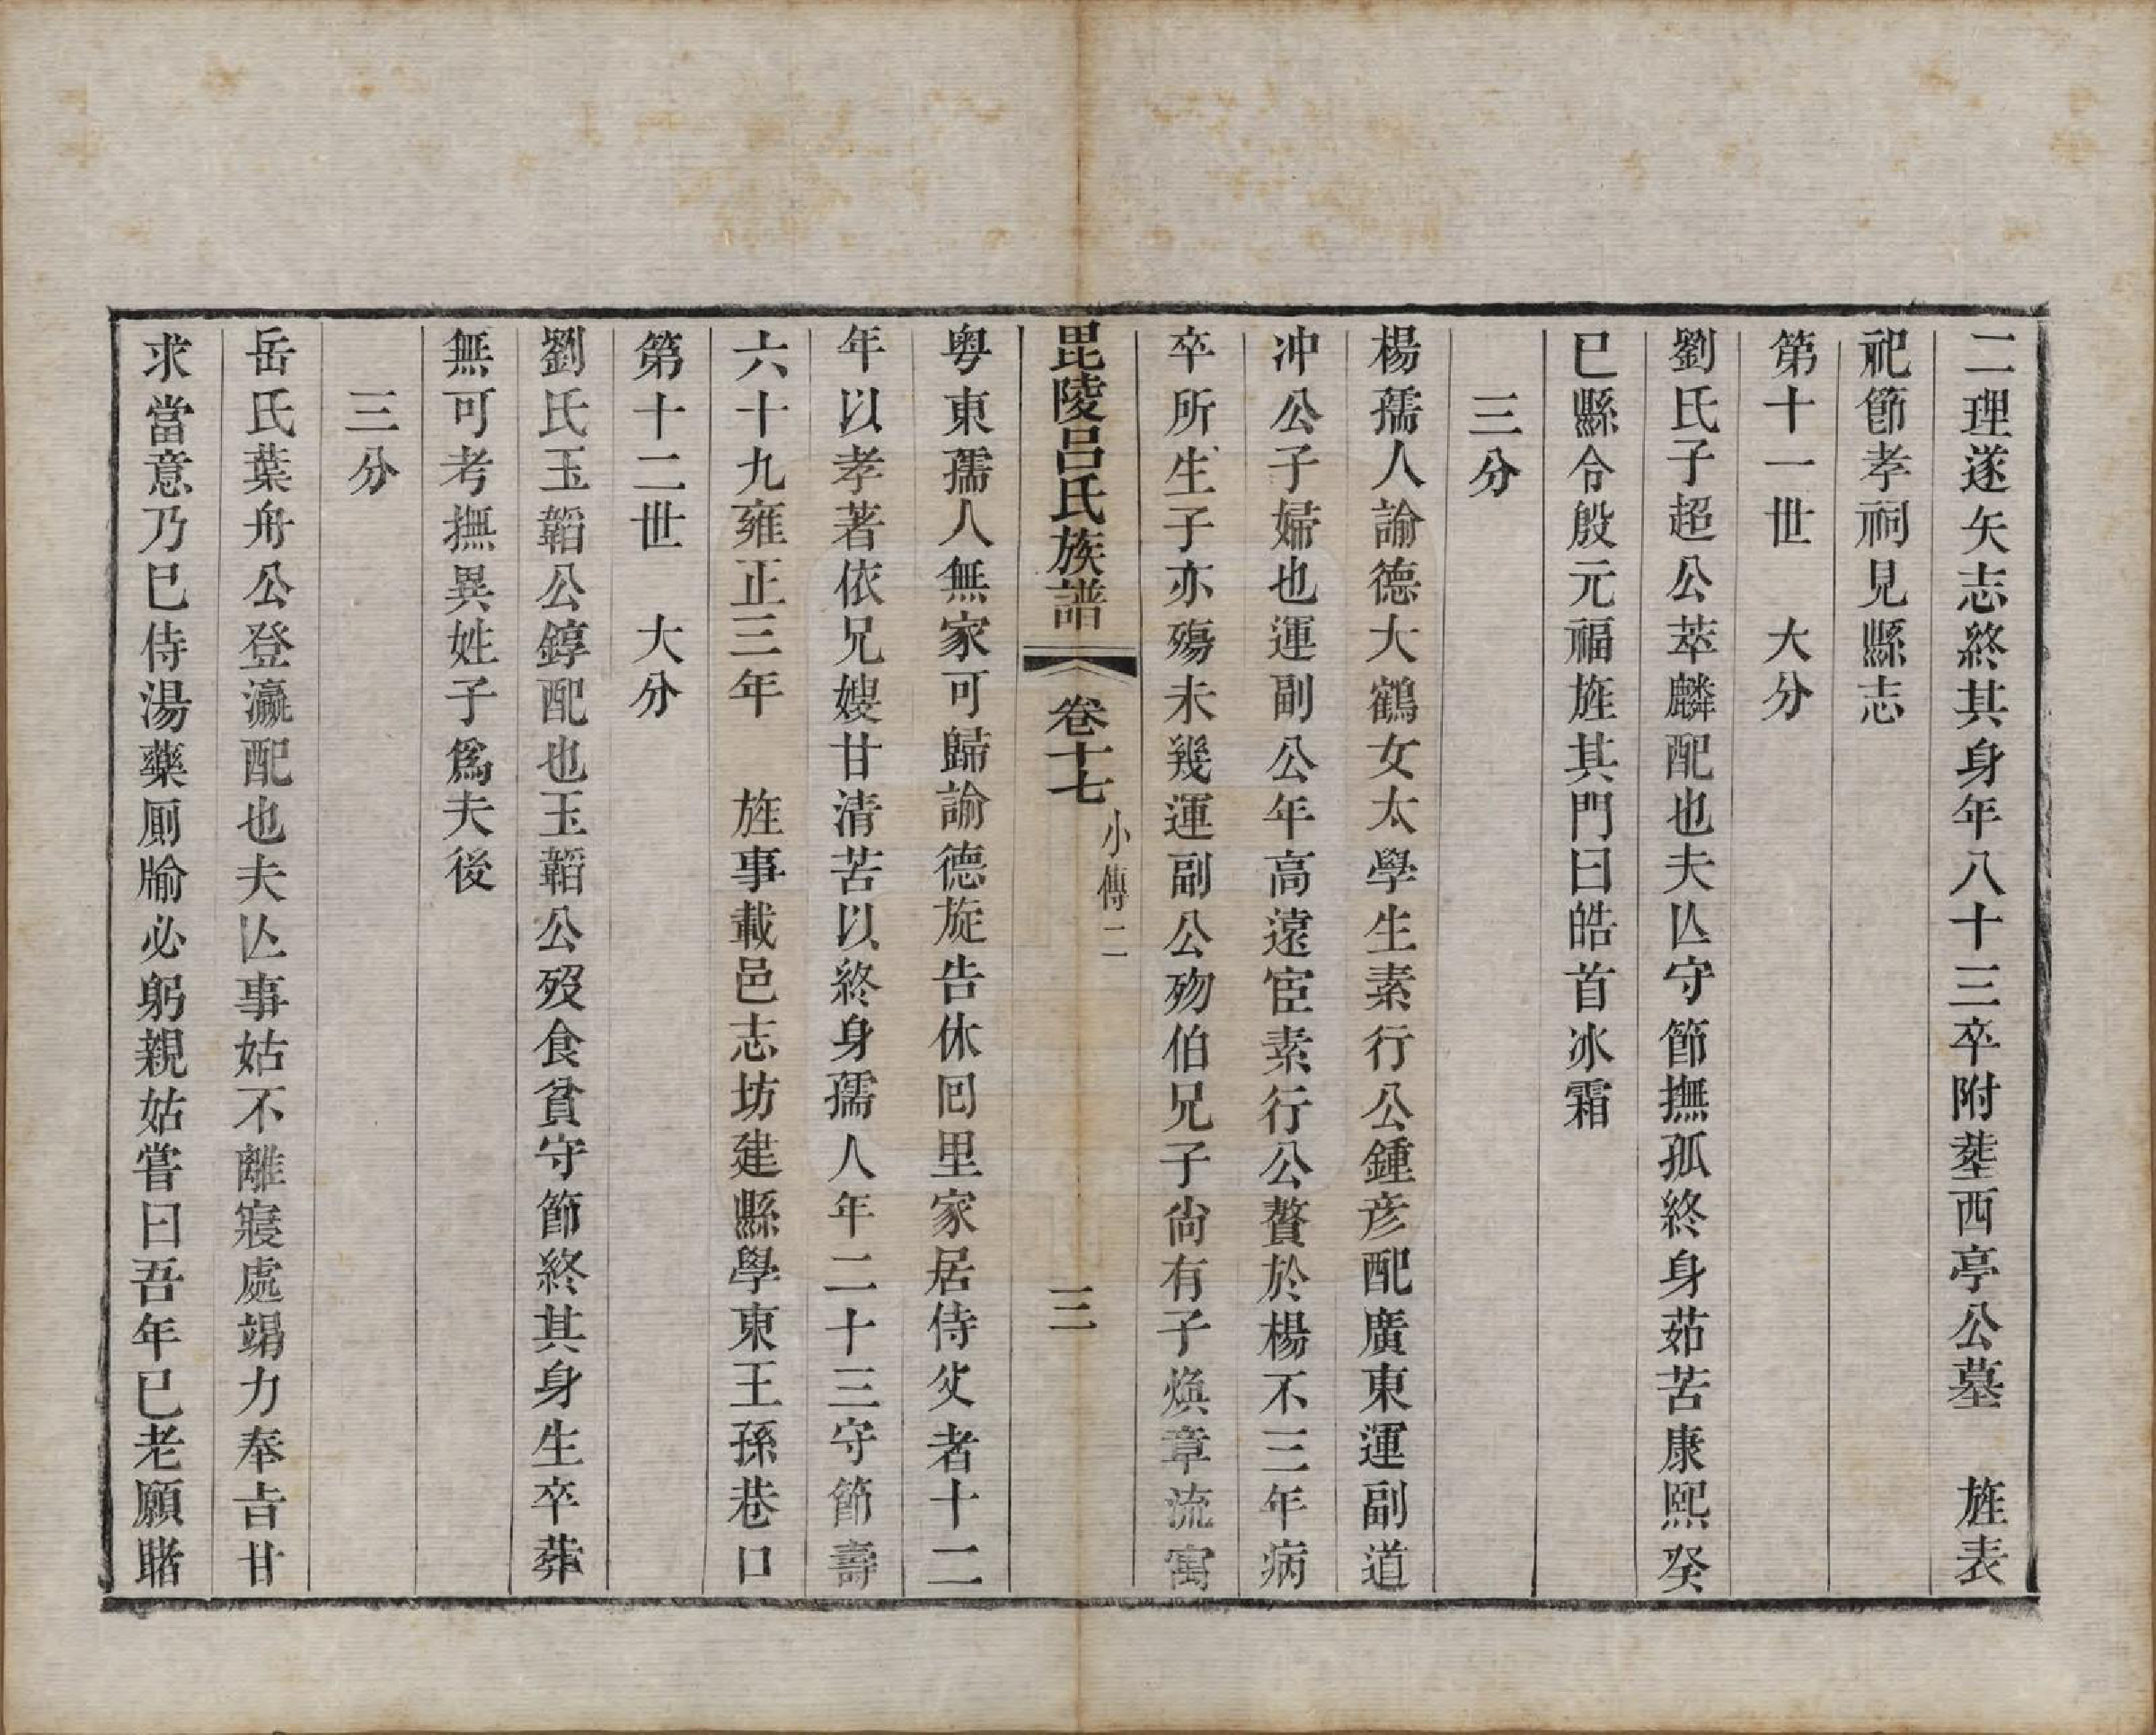 二理遂矢志終其身年八十三卒附塟西亭公墓　旌表
祀節孝祠見縣志
第十一世　大分
劉氏子超公萃麟配也夫亾守節撫孤終身茹苦康熙癸
巳縣令殷元福旌其門曰皓首冰霜
三分
楊孺人諭德大鶴女太學生素行公鍾彥配廣東運副道
冲公子婦也運副公年高遠宦素行公贅於楊不三年病
卒所生子亦殤未幾運副公歾伯兄子尙有子煥章流寓
毘陵呂氏族譜　卷十七　小傳二　三
粵東孺人無家可歸諭德旋告休囘里家居侍父者十二
年以孝著依兄嫂甘清苦以終身孺人年二十三守節壽
六十九雍正三年　旌事載邑志坊建縣學東王孫巷口
第十二世　大分
劉氏玉韜公錞配也玉韜公歿食貧守節終其身生卒葬
無可考撫異姓子爲夫後
三分
岳氏葉舟公登瀛配也夫亾事姑不離寢處竭力奉旨甘
求當意乃已侍湯藥厠牏必躬親姑嘗曰吾年已老願賭